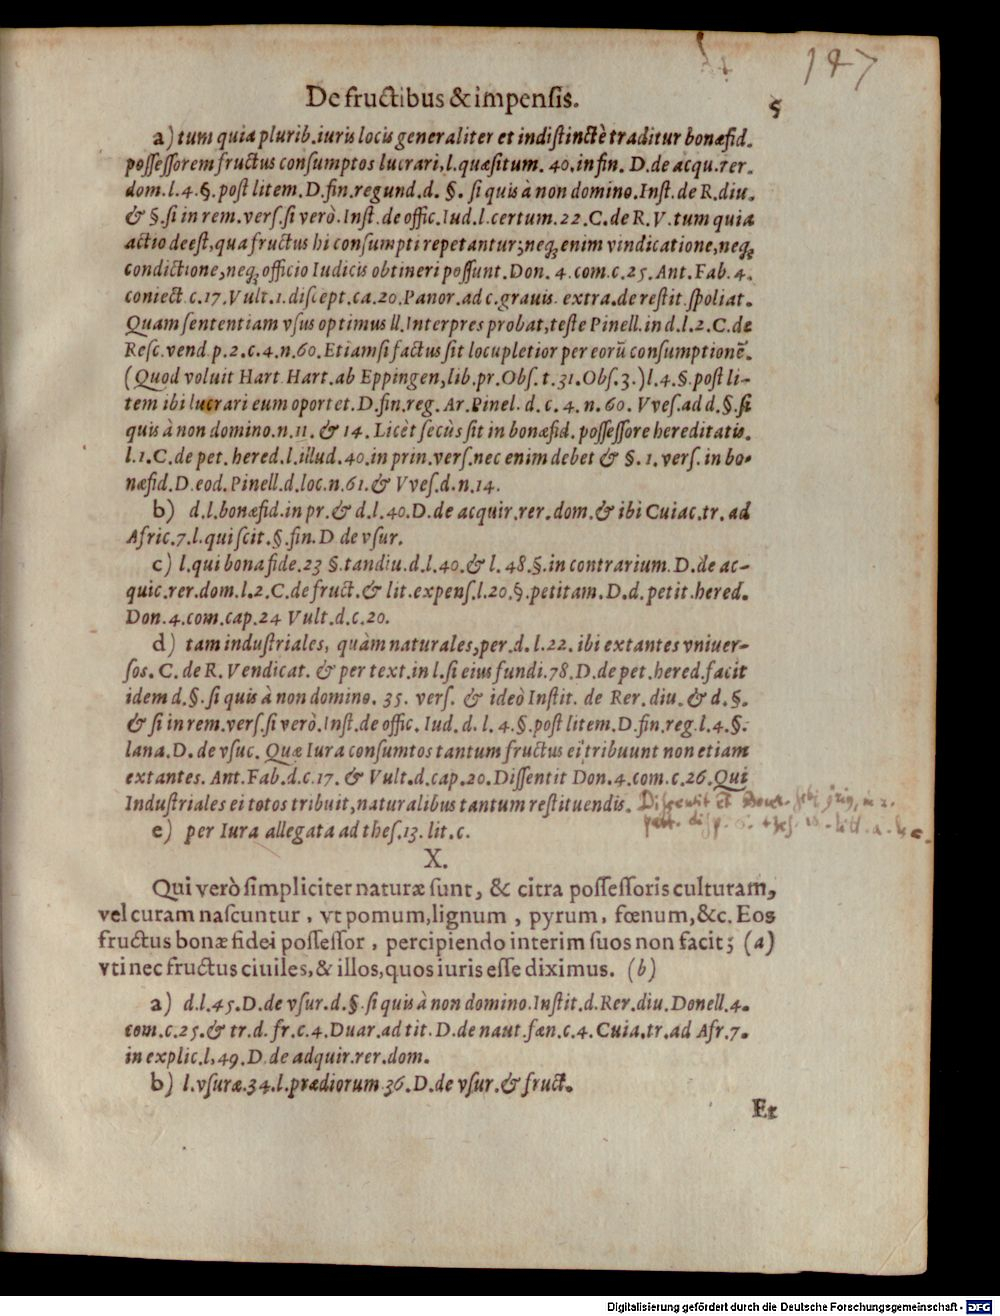 147
De fructibus & impensis. 5
a) tum quia plurib. iuris locis generaliter et indistinctè traditur bonæfid.
possessorem fructus consumptos lucrari, l. quæsitum. 40. in fin. D. de acqu. rer.
dom. l. 4. §. post litem. D. fin. regund. d. §. si quis à non domino. Inst. de R. diu.
& §. si in rem. vers. si verò. Inst. de offic. Iud. l. certum. 22. C. de R. V. tum quia
actio deest, qua fructus hi consumpti repetantur; neq; enim vindicatione, neq;
condictione, neq; officio Iudicis obtineri possunt. Don. 4. com. c. 25. Ant. Fab. 4.
coniect. c. 17. Vult. 1. discept. ca. 20. Panor. ad c. grauis. extra. de restit. spoliat.
Quam sententiam vsus optimus ll. Interpres probat, teste Pinell. in d. l. 2. C. de
Resc. vend. p. 2. c. 4. n. 60. Etiamsi factus sit locupletior per eorū consumptionē.
(Quod voluit Hart. Hart. ab Eppingen, lib. pr. Obs. t. 31. Obs. 3.) l. 4. §. post li-
tem ibi lucrari eum oportet. D. fin. reg. Ar. Pinel. d. c. 4. n. 60. Vves. ad d. §. si
quis à non domino. n. 11. & 14. Licèt secùs sit in bonæfid. possessore hereditatis.
l. 1. C. de pet. hered. l. illud. 40. in prin. vers. nec enim debet & §. 1. vers. in bo-
næfid. D. eod. Pinell. d. loc. n. 61. & Vves. d. n. 14.
b) d. l. bonæfid. in pr. & d. l. 40. D. de acquir. rer. dom. & ibi Cuiac. tr. ad
Afric. 7. l. qui scit. §. fin. D de vsur.
c) l. qui bona fide. 23 §. tandiu. d. l. 40. & l. 48. §. in contrarium. D. de ac-
quic. rer. dom. l. 2. C. de fruct. & lit. expens. l. 20. §. petitam. D. d. petit. hered.
Don. 4. com. cap. 24 Vult. d. c. 20.
d) tam industriales, quàm naturales, per. d. l. 22. ibi extantes vniuer-
sos. C. de R. Vendicat. & per text. in l. si eius fundi. 78. D. de pet. hered. facit
idem d. §. si quis à non domino. 35. vers. & ideò Instit. de Rer. diu. & d. §.
& si in rem. vers. si verò. Inst. de offic. Iud. d. l. 4. §. post litem. D. fin. reg. l. 4. §.
lana. D. de vsuc. Quæ Iura consumtos tantum fructus ei tribuunt non etiam
extantes. Ant. Fab. d. c. 17. & Vult. d. cap. 20. Dissentit Don. 4. com. c. 26. Qui
Industriales ei totos tribuit, naturalibus tantum restituendis. Dissentit et
e) per Iura allegata ad thes. 13. lit. c.
X.
Qui verò simpliciter naturæ sunt, & citra possessoris culturam,
vel curam nascuntur, vt pomum, lignum, pyrum, fœnum, &c. Eos
fructus bonæ fidei possessor, percipiendo interim suos non facit; (a)
vti nec fructus ciuiles, & illos, quos iuris esse diximus. (b)
a) d. l. 45. D. de vsur. d. §. si quis à non domino. Instit. d. Rer. diu. Donell. 4.
com. c. 25. & tr. d. fr. c. 4. Duar. ad tit. D. de naut. fæn. c. 4. Cuia. tr. ad Afr. 7.
in explic. l. 49. D. de adquir. rer. dom.
b) l. vsuræ. 34. l. prædiorum 36. D. de vsur. & fruct.
Et
Digitalisierung gefördert durch die Deutsche Forschungsgemeinschaft - DFG